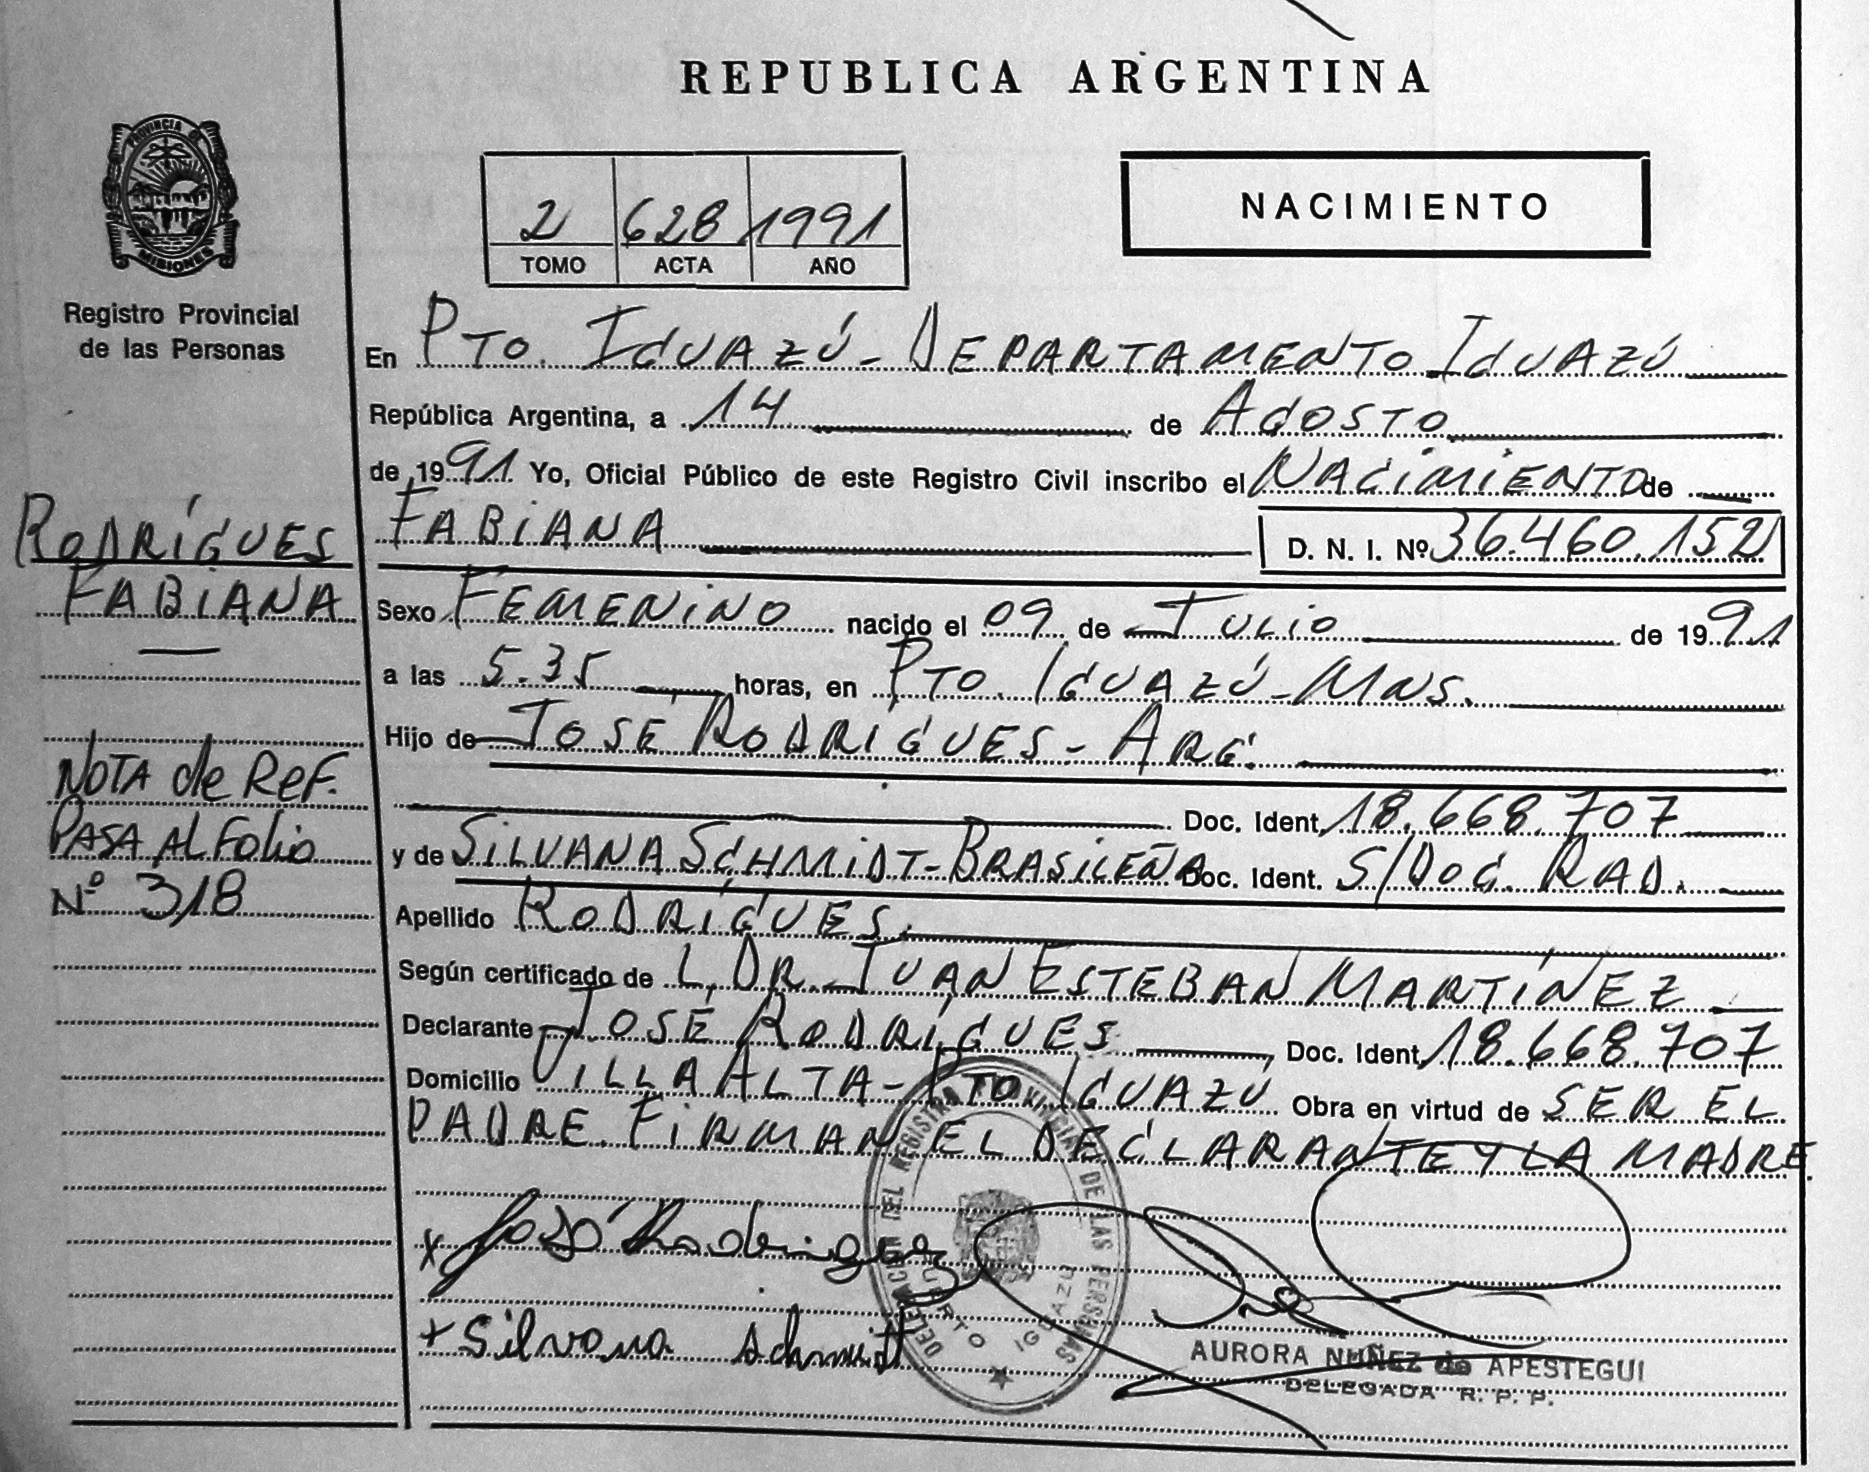 REPUBLICA ARGENTINA
PROVINCIA DE
MISIONES
Registro Provincial
de las Personas
2 628 1991
TOMO ACTA AÑO
NACIMIENTO
En PTO. IGUAZÚ - DEPARTAMENTO IGUAZÚ
República Argentina, a 14 de AGOSTO
de 1991 Yo, Oficial Público de este Registro Civil inscribo el NACIMIENTO de
FABIANA D. N. I. Nº 36.460.152
RODRÍGUES
FABIANA
Sexo FEMENINO nacido el 09 de JULIO de 1991
a las 5.35 horas, en PTO. IGUAZÚ - MNS.
Hijo de JOSÉ RODRÍGUES - ARG.
Doc. Ident. 18.668.707
y de SILVANA SCHMIDT - BRASILEÑA Doc. Ident. S/DOC. RAD.
NOTA de REF.
PASA AL Folio
Nº 318
Apellido RODRÍGUES.
Según certificado de L, DR. JUAN ESTEBAN MARTÍNEZ
Declarante JOSÉ RODRÍGUES Doc. Ident. 18.668.707
Domicilio VILLA ALTA - PTO IGUAZÚ Obra en virtud de SER EL
PADRE. FIRMAN EL DECLARANTE Y LA MADRE.
DELEGACION DEL REGISTRO PROVINCIAL DE LAS PERSONAS
PUERTO IGUAZU
x José Rodrigues
+ Silvana schmidt
AURORA NUÑEZ de APESTEGUI
DELEGADA R. P. P.